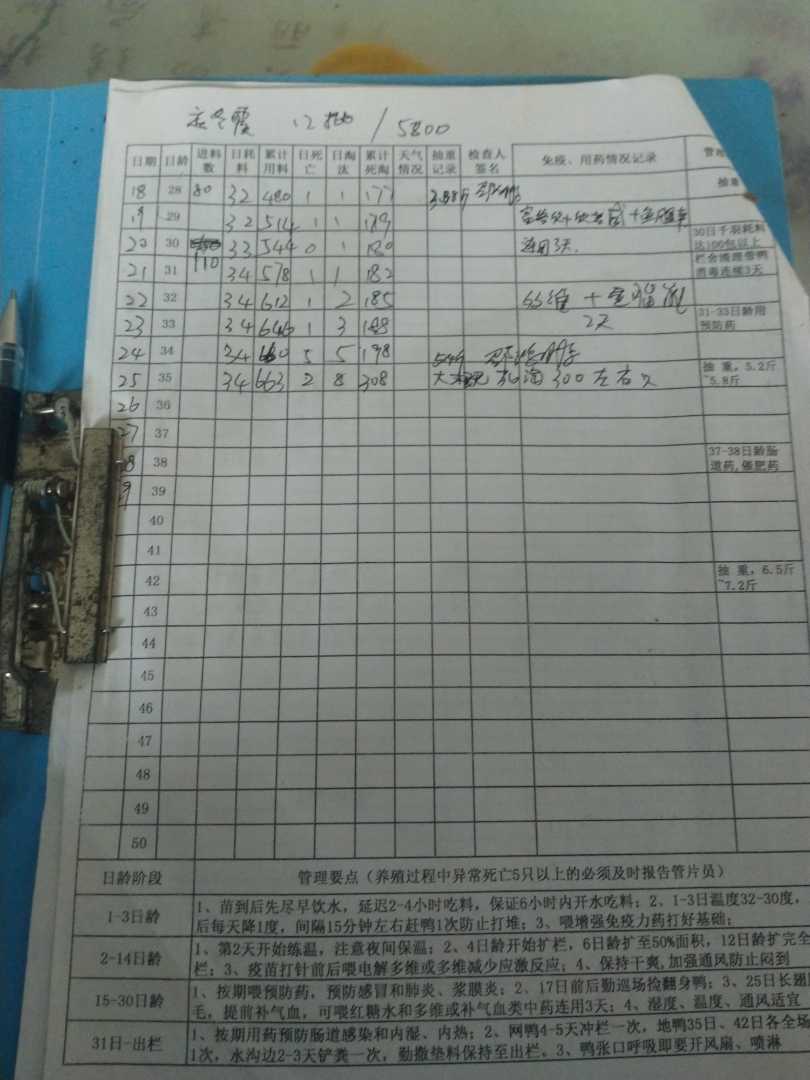 12批 / 5800
日期 日龄 进料数 日耗料 累计用料 日死亡 日淘汰 累计死淘 天气情况 抽重记录 检查人签名 免疫、用药情况记录
18 28 80 32 480 1 1 177 抽重
19 29 32 514 1 1 179
20 30 110 33 544 0 1 180 连用3天. 30日千羽耗料达100包以上
21 31 34 578 1 1 182 栏舍清理带鸭消毒连续3天
22 32 34 612 1 2 185
23 33 34 646 1 3 188 2天 31-33日龄用预防药
24 34 34 660 5 5 198
25 35 34 663 2 8 308 300左右 抽 重, 5.2斤~5.8斤
26 36
27 37
38 37-38日龄肠道药,催肥药
39
40
41
42 抽 重, 6.5斤~7.2斤
43
44
45
46
47
48
49
50
日龄阶段 管理要点（养殖过程中异常死亡5只以上的必须及时报告管片员）
1-3日龄 1、苗到后先尽早饮水，延迟2-4小时吃料，保证6小时内开水吃料；2、1-3日温度32-30度，
后每天降1度，间隔15分钟左右赶鸭1次防止打堆；3、喂增强免疫力药打好基础；
2-14日龄 1、第2天开始练温，注意夜间保温；2、4日龄开始扩栏，6日龄扩至50%面积，12日龄扩完全
栏；3、疫苗打针前后喂电解多维或多维减少应激反应；4、保持干爽,加强通风防止闷到
15-30日龄 1、按期喂预防药，预防感冒和肺炎、浆膜炎；2、17日前后勤巡场捡翻身鸭；3、25日长翅
毛，提前补气血，可喂红糖水和多维或补气血类中药连用3天；4、湿度、温度、通风适宜
31日-出栏 1、按期用药预防肠道感染和内湿、内热；2、网鸭4-5天冲栏一次，地鸭35日、42日各全场
1次，水沟边2-3天铲粪一次，勤撒垫料保持至出栏。3、鸭张口呼吸即要开风扇、喷淋